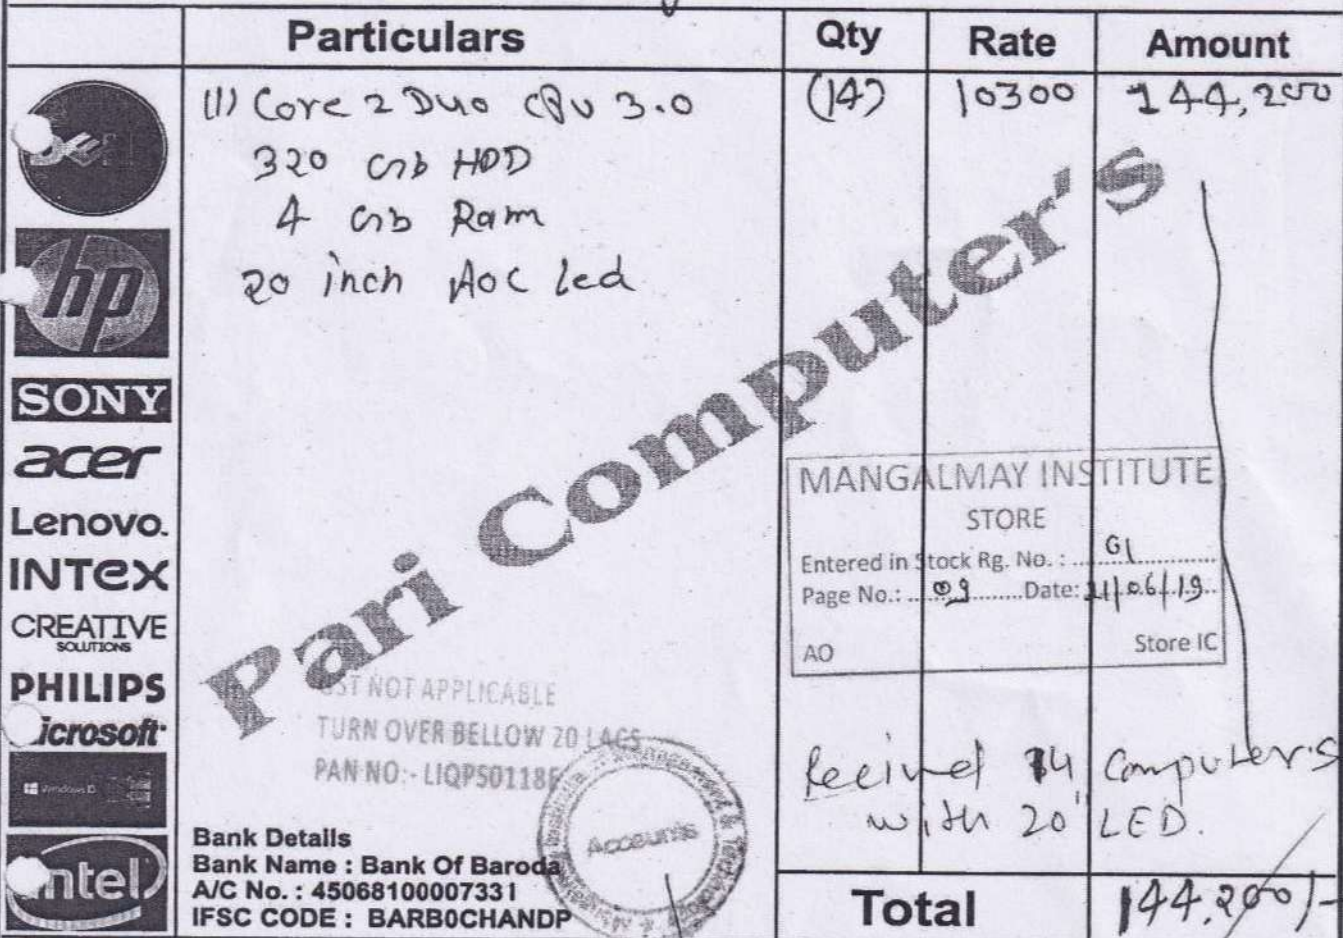 Particulars Qty Rate Amount
(1) Core 2 Duo CPU 3.0 (14) 10300 144,200
320 Gb HDD
4 Gb Ram
20 inch AOC Led
DELL
hp
SONY
acer
Lenovo.
INTEX
CREATIVE
SOLUTIONS
PHILIPS
Microsoft
Windows 10
intel
Pari Computer's
MANGALMAY INSTITUTE
STORE
Entered in Stock Rg. No. : G1
Page No.: 09 Date: 21/06/19
AO Store IC
GST NOT APPLICABLE
TURN OVER BELLOW 20 LACS
PAN NO:- LIQPS0118F
Recived 14 Computers
with 20" LED.
Accounts
Bank Details
Bank Name : Bank Of Baroda
A/C No. : 45068100007331
IFSC CODE : BARB0CHANDP
Total 144,200/-